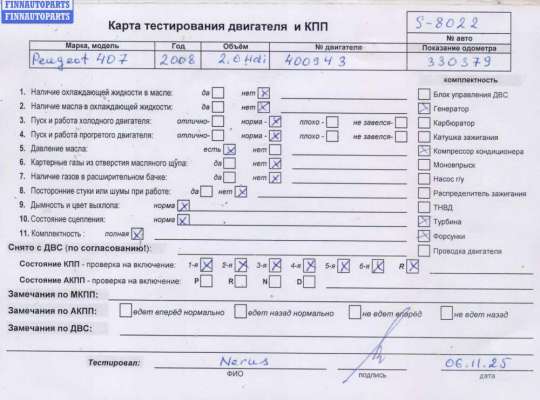 FINNAUTOPARTS
FINNAUTOPARTS
Карта тестирования двигателя и КПП
S-8022
№ авто
Марка, модель Год Объём № двигателя Показание одометра
Peugeot 407 2008 2.0 Hdi 400943 330379
комплектность
1. Наличие охлаждающей жидкости в масле: да нет
Блок управления ДВС
2. Наличие масла в охлаждающей жидкости: да нет
Генератор
3. Пуск и работа холодного двигателя: отлично- норма - плохо - не завелся-
Карбюратор
4. Пуск и работа прогретого двигателя: отлично- норма - плохо - не завелся-
Катушка зажигания
5. Давление масла: есть нет
Компрессор кондиционера
6. Картерные газы из отверстия масляного щупа: да нет
Моновпрыск
7. Наличие газов в расширительном бачке: да нет
Насос г/у
8. Посторонние стуки или шумы при работе: да нет
Распределитель зажигания
9. Дымность и цвет выхлопа: норма
ТНВД
10. Состояние сцепления: норма
Турбина
11. Комплектность : полная
Форсунки
Снято с ДВС (по согласованию!):
Проводка двигателя
Состояние КПП - проверка на включение: 1-я 2-я 3-я 4-я 5-я 6-я R
Состояние АКПП - проверка на включение: P R N D
Замечания по МКПП:
Замечания по АКПП: едет вперёд нормально едет назад нормально не едет вперёд не едет назад
Замечания по ДВС:
Тестировал: Nerus 06.11.25
ФИО подпись дата